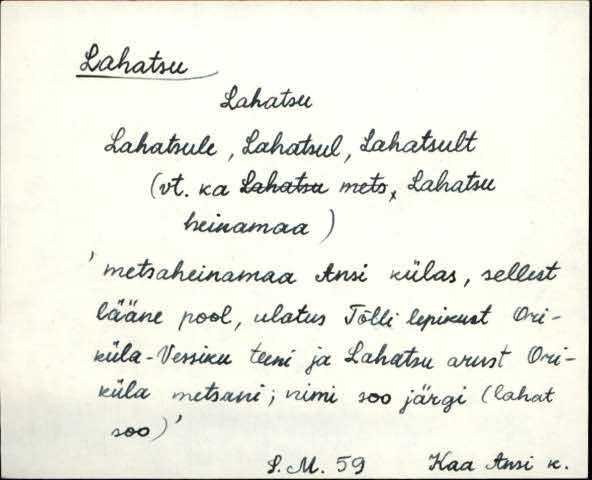 Lahatsu
Lahatsu
Lahatsule, Lahatsul, Lahatsult
(vt. ka Lahatsu mets, Lahatsu
heinamaa)
'metsaheinamaa Ansi külas, sellest
lääne pool, ulatus Tõlli lepikust Ori-
küla-Versiku teeni ja Lahatsu arust Ori-
küla metsani; nimi soo järgi (lahat
soo)'
S.M. 59 Kaa Ansi k.